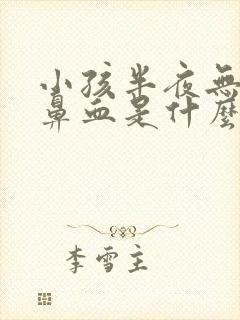 小孩半夜無
鼻血是什麼
李雪主